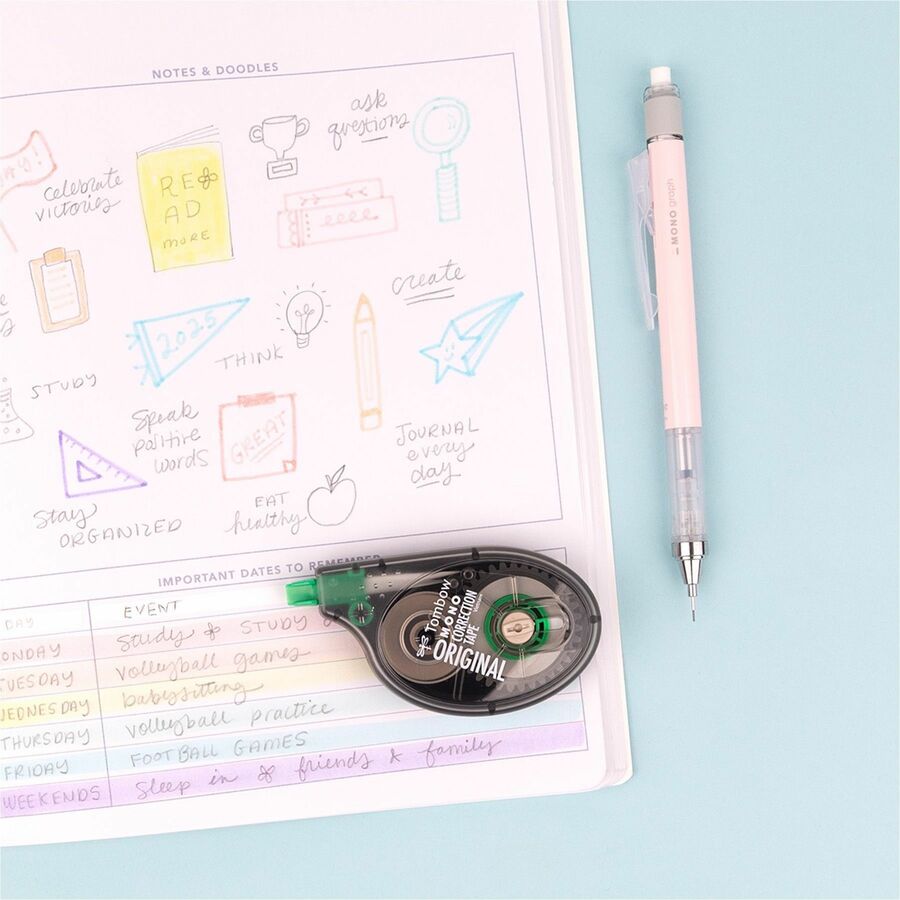 NOTES & DOODLES
ask
questions
celebrate
victories
READ
MORE
create
2025
THINK
STUDY
Speak
positive
words
GREAT
JOURNAL
every
day
Stay
ORGANIZED
EAT
healthy
MONO graph
IMPORTANT DATES TO REMEMBER
DAY EVENT
MONDAY Study & STUDY
TUESDAY volleyball games
WEDNESDAY babysitting
THURSDAY volleyball practice
FRIDAY FOOTBALL GAMES
WEEKENDS Sleep in & friends & family
Tombow
MONO
CORRECTION
TAPE
ORIGINAL